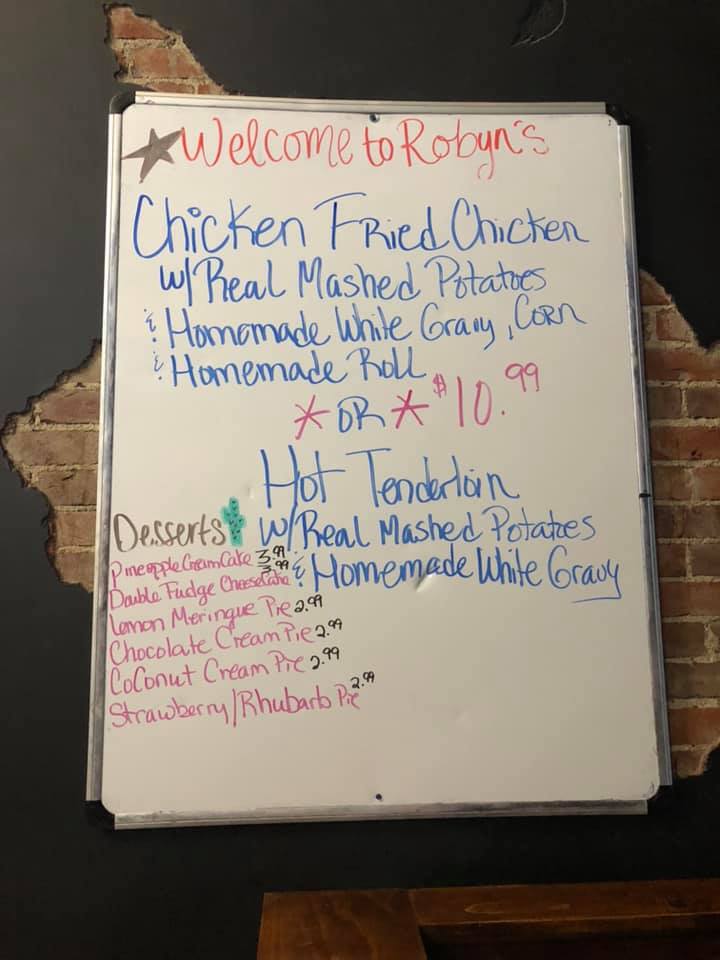 Welcome to Robyn's
Chicken Fried Chicken
w/ Real Mashed Potatoes
& Homemade White Gravy, Corn
& Homemade Roll
* OR * $10.99
Hot Tenderloin
w/ Real Mashed Potatoes
& Homemade White Gravy
Desserts
Pineapple Cream Cake 3.99
Double Fudge Cheesecake 3.99
Lemon Meringue Pie 2.99
Chocolate Cream Pie 2.99
CoConut Cream Pie 2.99
Strawberry/Rhubarb Pie 2.99